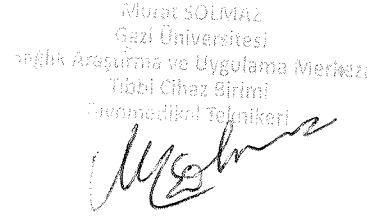 Murat SOLMAZ
Gazi Üniversitesi
Sağlık Araştırma ve Uygulama Merkezi
Tıbbi Cihaz Birimi
Biyomedikal Teknikeri